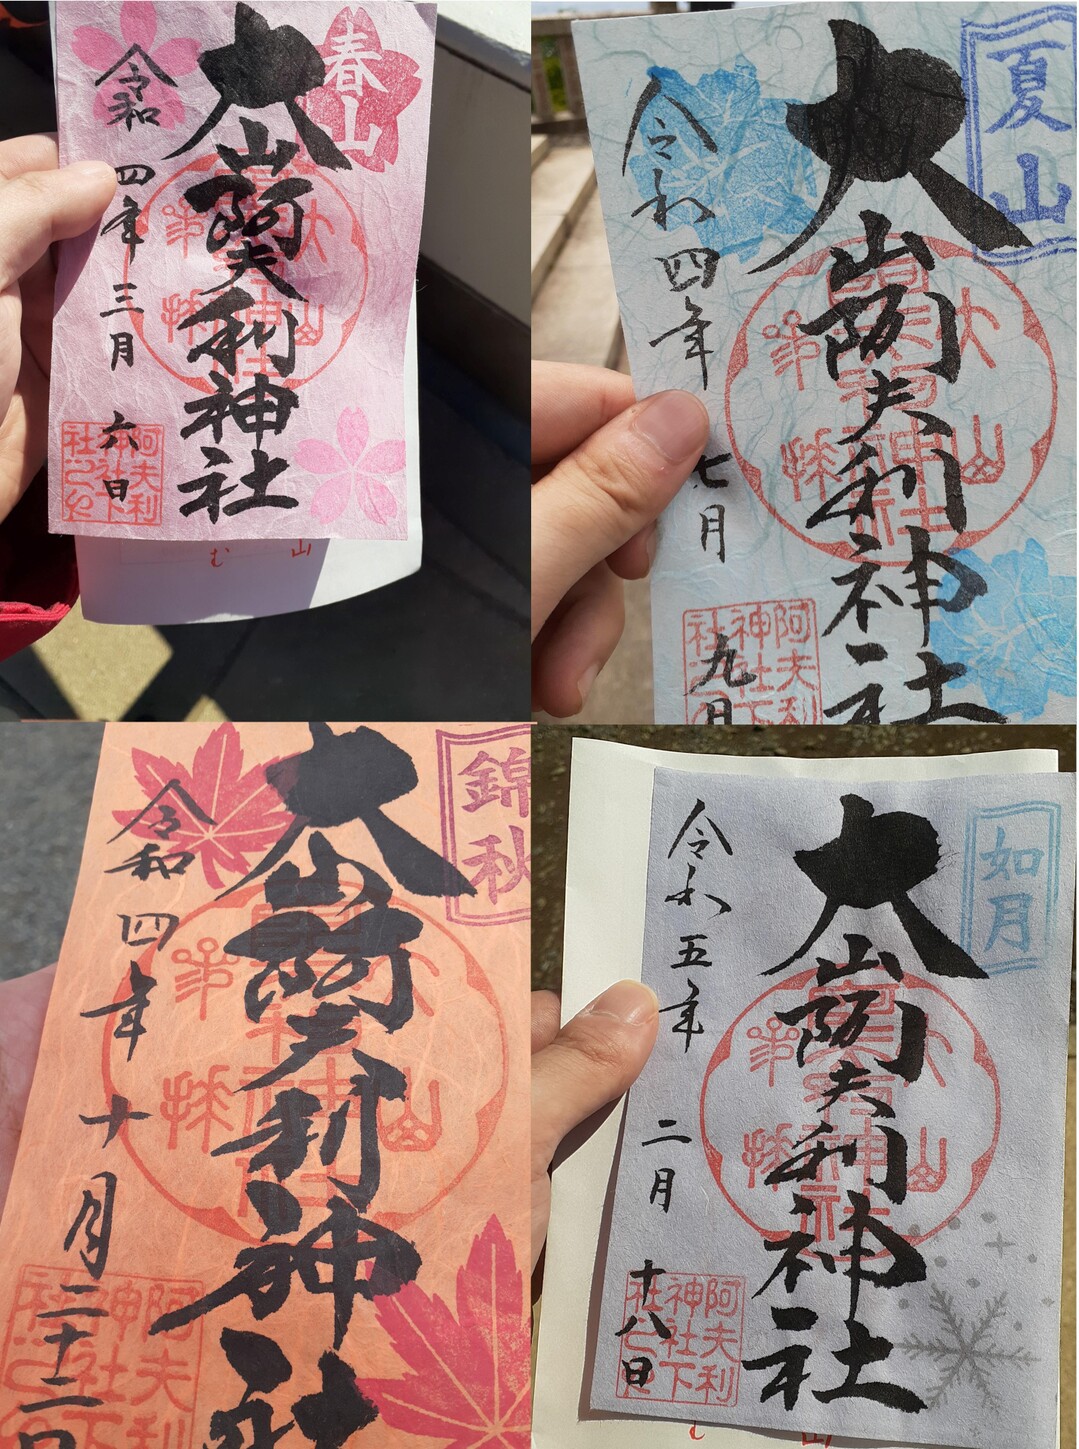 春山
大山阿夫利神社
令和四年三月六日
阿夫利
神社下
山
む
夏山
大山阿夫利神社
令和四年七月九日
阿夫利
神社下
錦秋
大山阿夫利神社
令和四年十月二十二日
阿夫利
神社下
如月
大山阿夫利神社
令和五年二月十八日
阿夫利
神社下